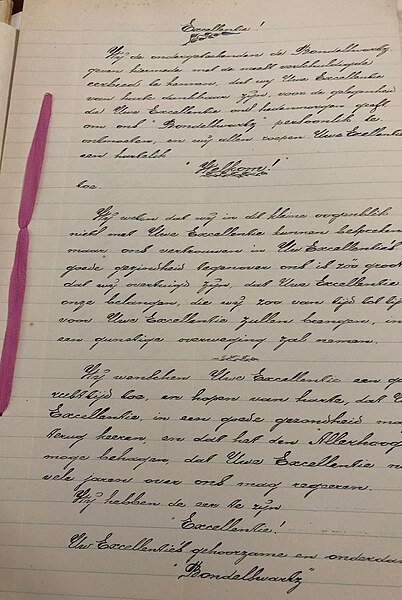 Excellentie!
Wij de ondergeteekenden de Bondelhwartz
geven hiermede met de meest verschuldigde
eerbied te kennen, dat wij Uwe Excellentie
van harte dankbaar zijn, voor de gelegenheid
die Uwe Excellentie ons hedenmorgen geeft
om ons "Bondelhwartz" persoonlik te
ontmoeten, en wij allen roepen Uwe Excellentie
een hartelik
"Welkom!"
toe.
Wij weten dat wij in dit kleine oogenblik
niet met Uwe Excellentie kunnen bespreken
maar ons vertrouwen in Uw Excellentie's
goede gezindheid tegenover ons is zoo groot
dat wij overtuigd zijn, dat Uwe Excellentie
onze belangen, die wij zoo van tijd tot tijd
voor Uwe Excellentie zullen brengen, in
een gunstige overweging zal nemen.
Wij wenschen Uwe Excellentie een
toe, en hopen van harte, dat
Excellentie, in een goede gezondheid
terug keeren, en dat het den
moge behagen, dat Uwe Excellentie
vele jaren over ons mag regeeren.
Wij hebben de eer te zijn
Excellentie!
Uw Excellentie's gehoorzame en
"Bondelhwartz"